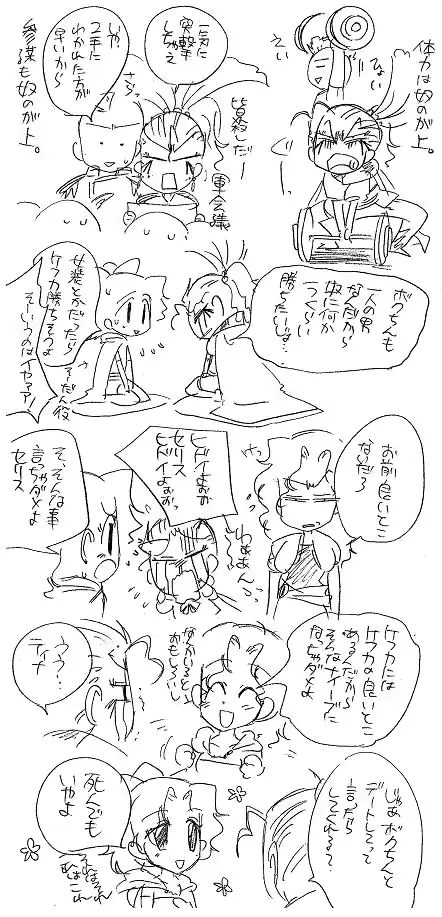 体力は奴のが上。
ひょい
えい
ぐっ
一気に
突撃
しちゃえ
皆殺しだー
軍会議
いや
2手に
わかれた方が
早いから
さぁ
参謀も奴のが上。
ボクちんも
一人の男
なんだから
奴に何か
1つくらい
勝ちたいよ…
女装とかだったら
ケフカ勝ちそうよ
そういうのはイヤァァ!
そうだん役
お前良いとこ
ないだろ
ヒドイよぉぉ
セリス
ヒドイよぉぉっ
わぁぁん
そ、そんな事
言っちゃダメよ
セリス
ケフカには
ケフカの良いとこ
あるんだから
そんなナイーブに
なっちゃダメよ
からかいると
おもしろいし
ウウ…
ティナ…
じゃあボクちんと
デートしろって
言ったら
してくれる?
死んでも
いやよ
それはそれ
これはこれ